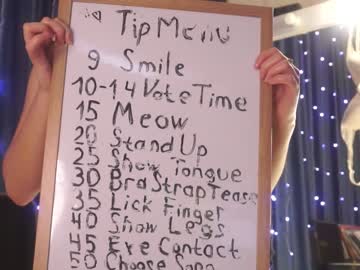 Tip Menu
9 Smile
10-14 Vote Time
15 Meow
20 Stand Up
25 Show Tongue
30 Bra Strap Tease
35 Lick Finger
40 Show Legs
45 Eye Contact
50 Choose Song